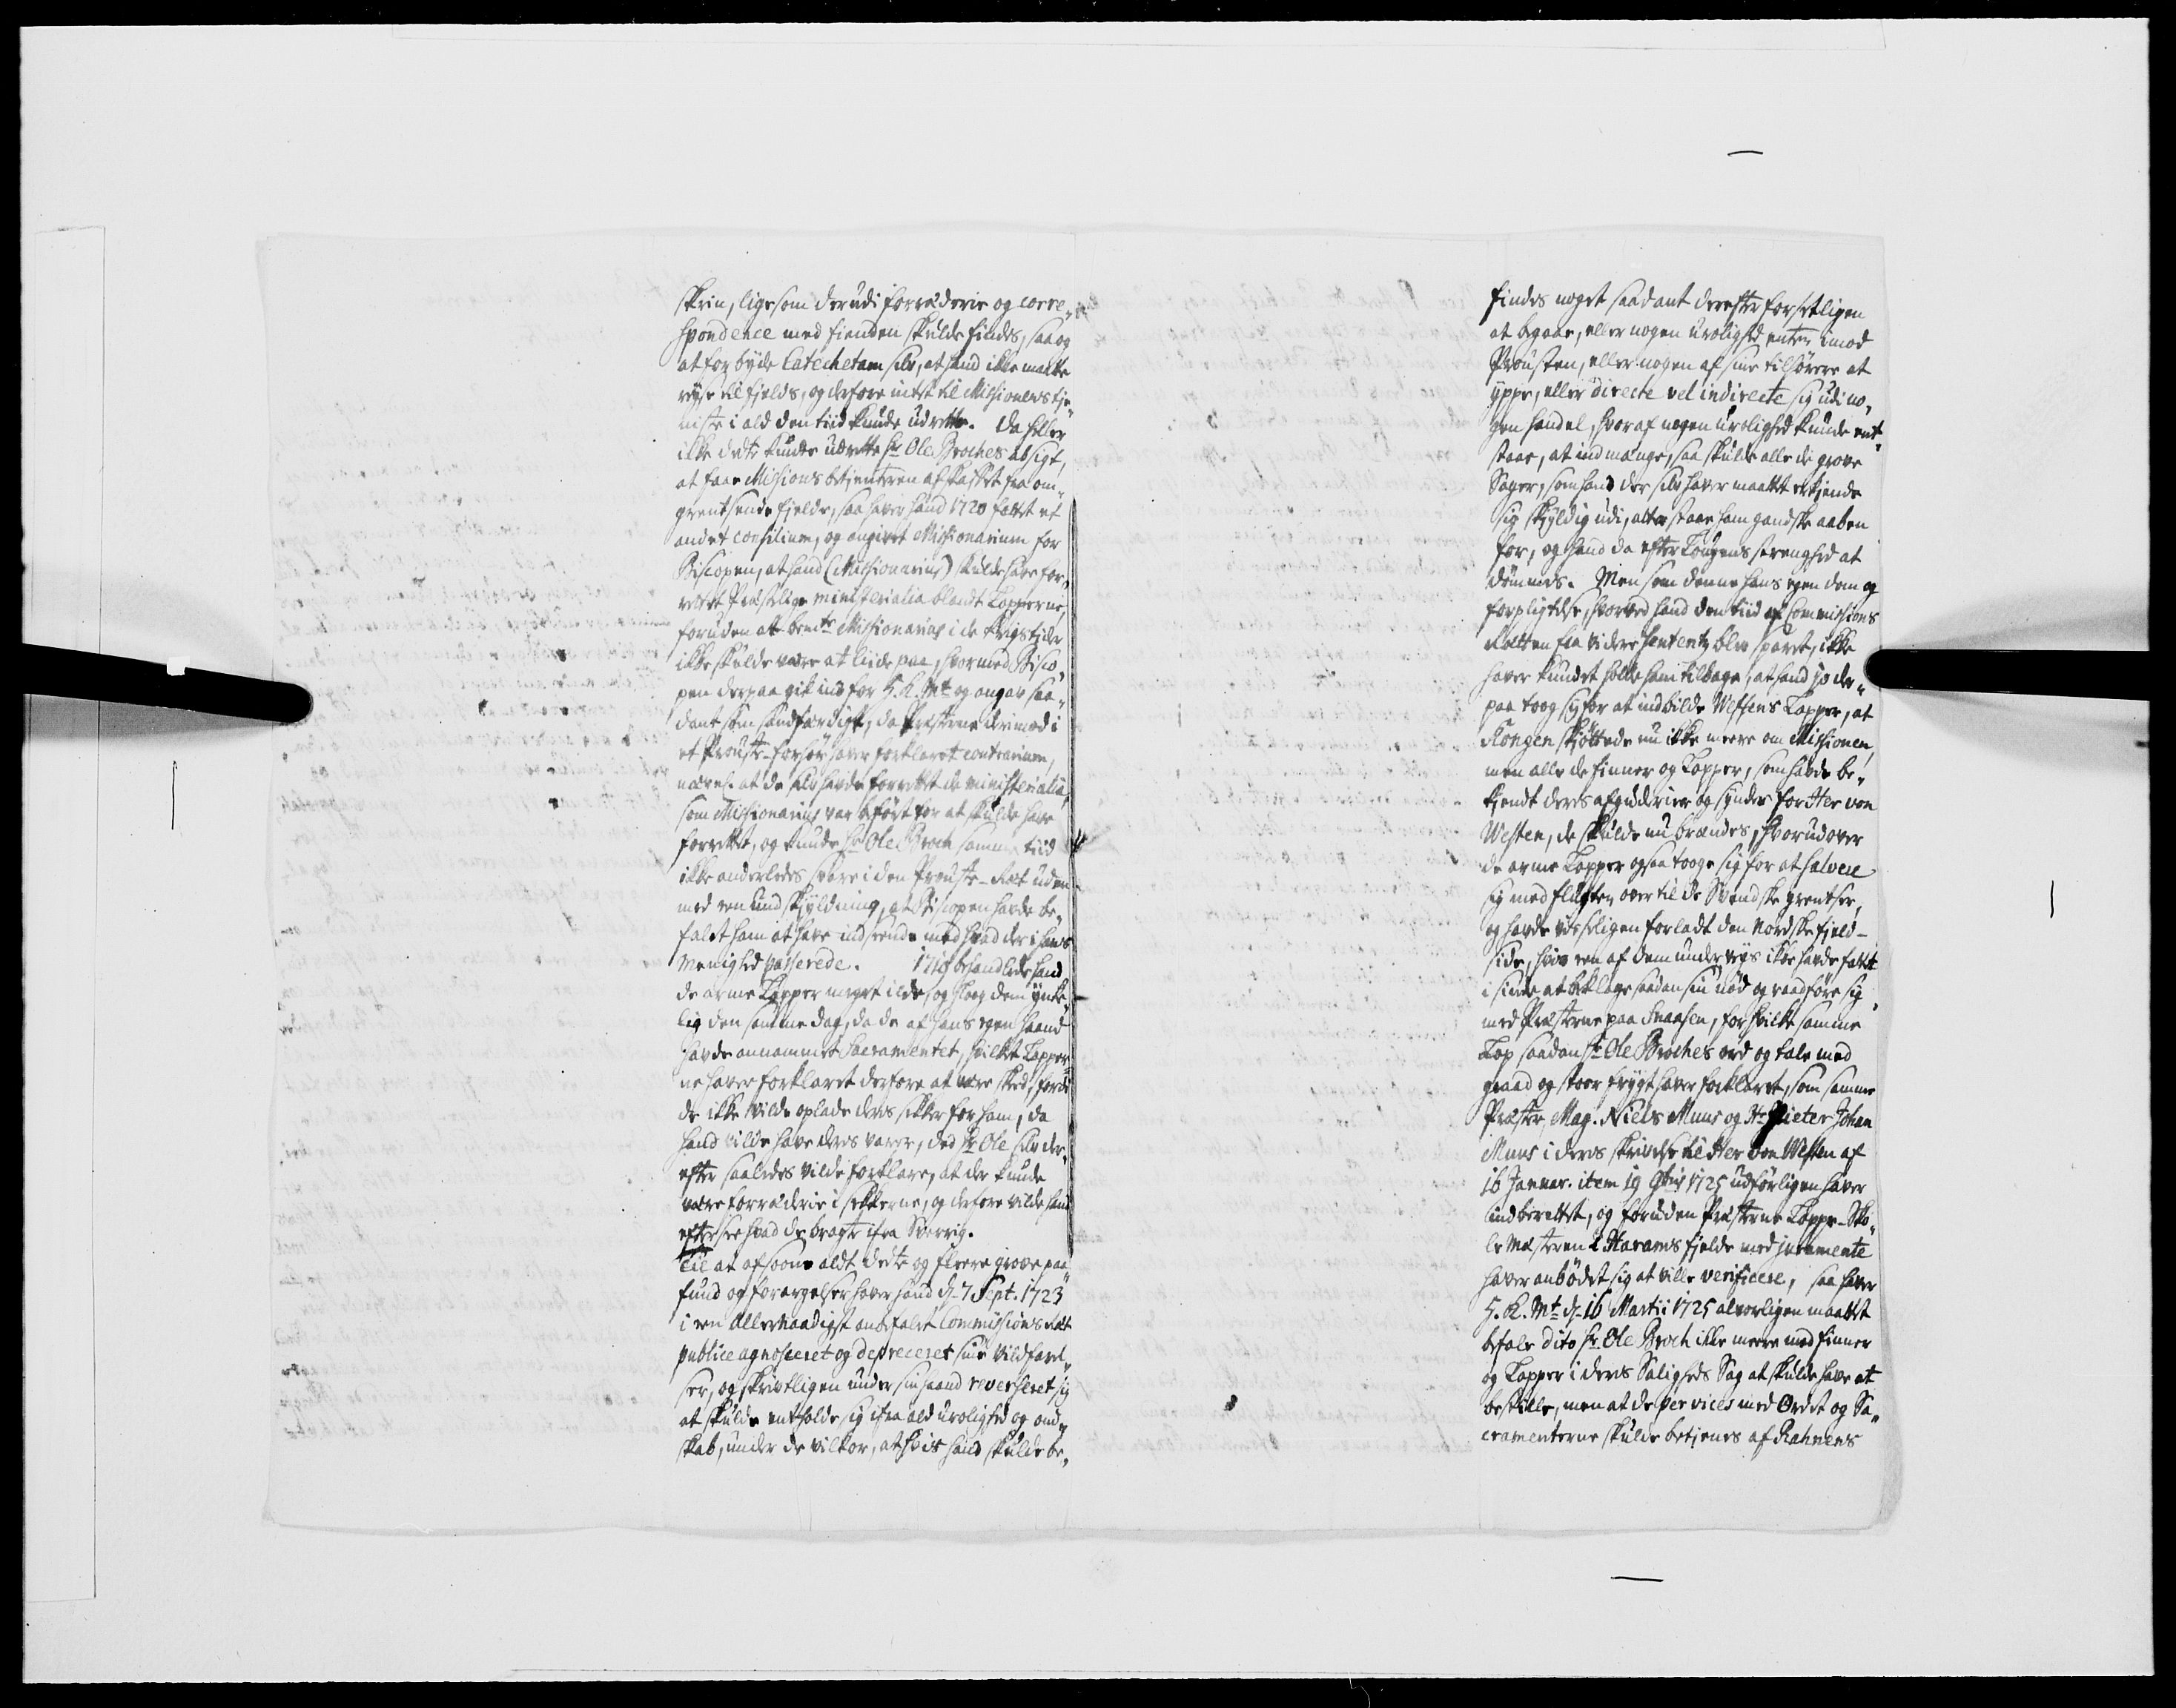 skrin, lige som derudi forræderie og corre„
spondence med fienden skulde findes, saa og
at forbyde Catechetam selv, at hand ikke maatte
reyse til fields, og derfore intet til Missionens tje„
niste i ald den tiid kunde udrette. Da heller
ikke dette kunde udrette Hr Ole Broches absigt,
at faae Missions betienteren afskaffet fra om„
grentsende fielde, saa haver hand 1720 fattet et
andet consilium, og angivet Missionarium for
Biscopen, at hand (Missionarius) skulde have for„
rettet Præstelige ministerialia blandt Lapperne,
foruden at bemte Missionarius i de krigstider
ikke skulde være at liide paa, hvormed Bisco„
pen derpaa gik ind for H. K. Mt og angav saa„
dant som sandfærdigt, da Præsterne derimod i
et Prouste-forhør haver forklaret contrarium,
nævnl. at de selv havde forrettet de ministerialia,
som Missionarius var beført for at skulde have
forrettet, og kunde Hr Ole Broch samme tiid
ikke anderledes svare i den Prouste-Ret uden
med een undskyldning, at Biscopen havde be„
falet ham at have indseende med hvad der i hans
Menighed passerede. 1719 behandlede hand
de arme Lapper meget ilde, og sloeg dem ynke„
lig den samme dag, da de af hans egen haand
havde annammet Sacramentet, hvilket Lapper„
ne haver forklaret derfore at være skeed, fordi
de ikke vilde oplade deres sekker for ham, da
hand vilde have deres varer, ded Hr Ole selv der„
efter saaledes vilde forklare, at der kunde
være forræderie i sekkerne, og derfore vilde hand
efter see hvad de bragte ifra Sverrig.
Til at afsoone aldt dette og fleere grove paa„
fund og forargelser haver hand d. 7 Sept. 1723
i een Allernaadigst anbefalet Commissions Ret
publice agnosceret og depreceret sine vildfarel„
ser, og skriftligen under sin haand reverseret sig
at skulde entholde sig ifra ald urolighed og ond„
skab, under de vilkor, at hvis hand skulde be„
findes noget saadant derefter forsetligen
at begaae, eller nogen urolighed enten imod
Prousten, eller nogen af sine tilhørere at
yppe, eller directe vel indirecte sig udi no„
gen handel, hvoraf nogen urolighed kunde ent„
staae, at indmænge, saa skulde alle de grove
Sager, som hand der selv haver maattet erkjende
sig skyldig udi, atter staae ham gandske aaben
for, og hand da efter Lougens strenghed at
dømmes. Men som denne hans egen dom og
forpligtelse, hvorved hand den tiid af Commissions
Retten fra videre sententz blev sparet, ikke
haver kundet holde ham tilbage, at hand jo der„
paa toog sig for at indbilde Vefsens Lapper, at
Kongen skjøttede nu ikke meere om Missionen,
men alle de finner og Lapper, som havde be„
kjendt deres afguderier og synder for Her von
Westen, de skulde nu brændes, hvorudover
de arme Lapper ogsaa tooge sig for at salvere
sig med flugten over til de Svendske grentser,
og havde visseligen forladt den Nordske field-
side, hvis een af dem underveys ikke havde fattet
i sinde at beklage saadan sin nød og raadføre sig
med Præsterne paa Snaasen, for hvilke samme
Lap saadan Hr Ole Broches ord og tale med
graad og stoor frygt haver forklaret, som samme
Præster, Mag. Niels Muus og Hr Pieter Johan
Muus i deres skrivelse til Her von Westen af
16 Januar. item 19 9bris 1725 udførligen haver
indberettet, og foruden Præsterne Lappe-Sko„
le Mesteren i Harams fjelde med juramente
haver anbødet sig at ville verificere, saa haver
H. K. Mt d. 16 Martii 1725 alvorligen maattet
befale dito Hr Ole Broch ikke meere med finner
og Lapper i deres Saligheds Sag at skulde have at
bestille, men at de per vices med Ordet og Sa„
cramenterne skulde betjenes af Rahnens